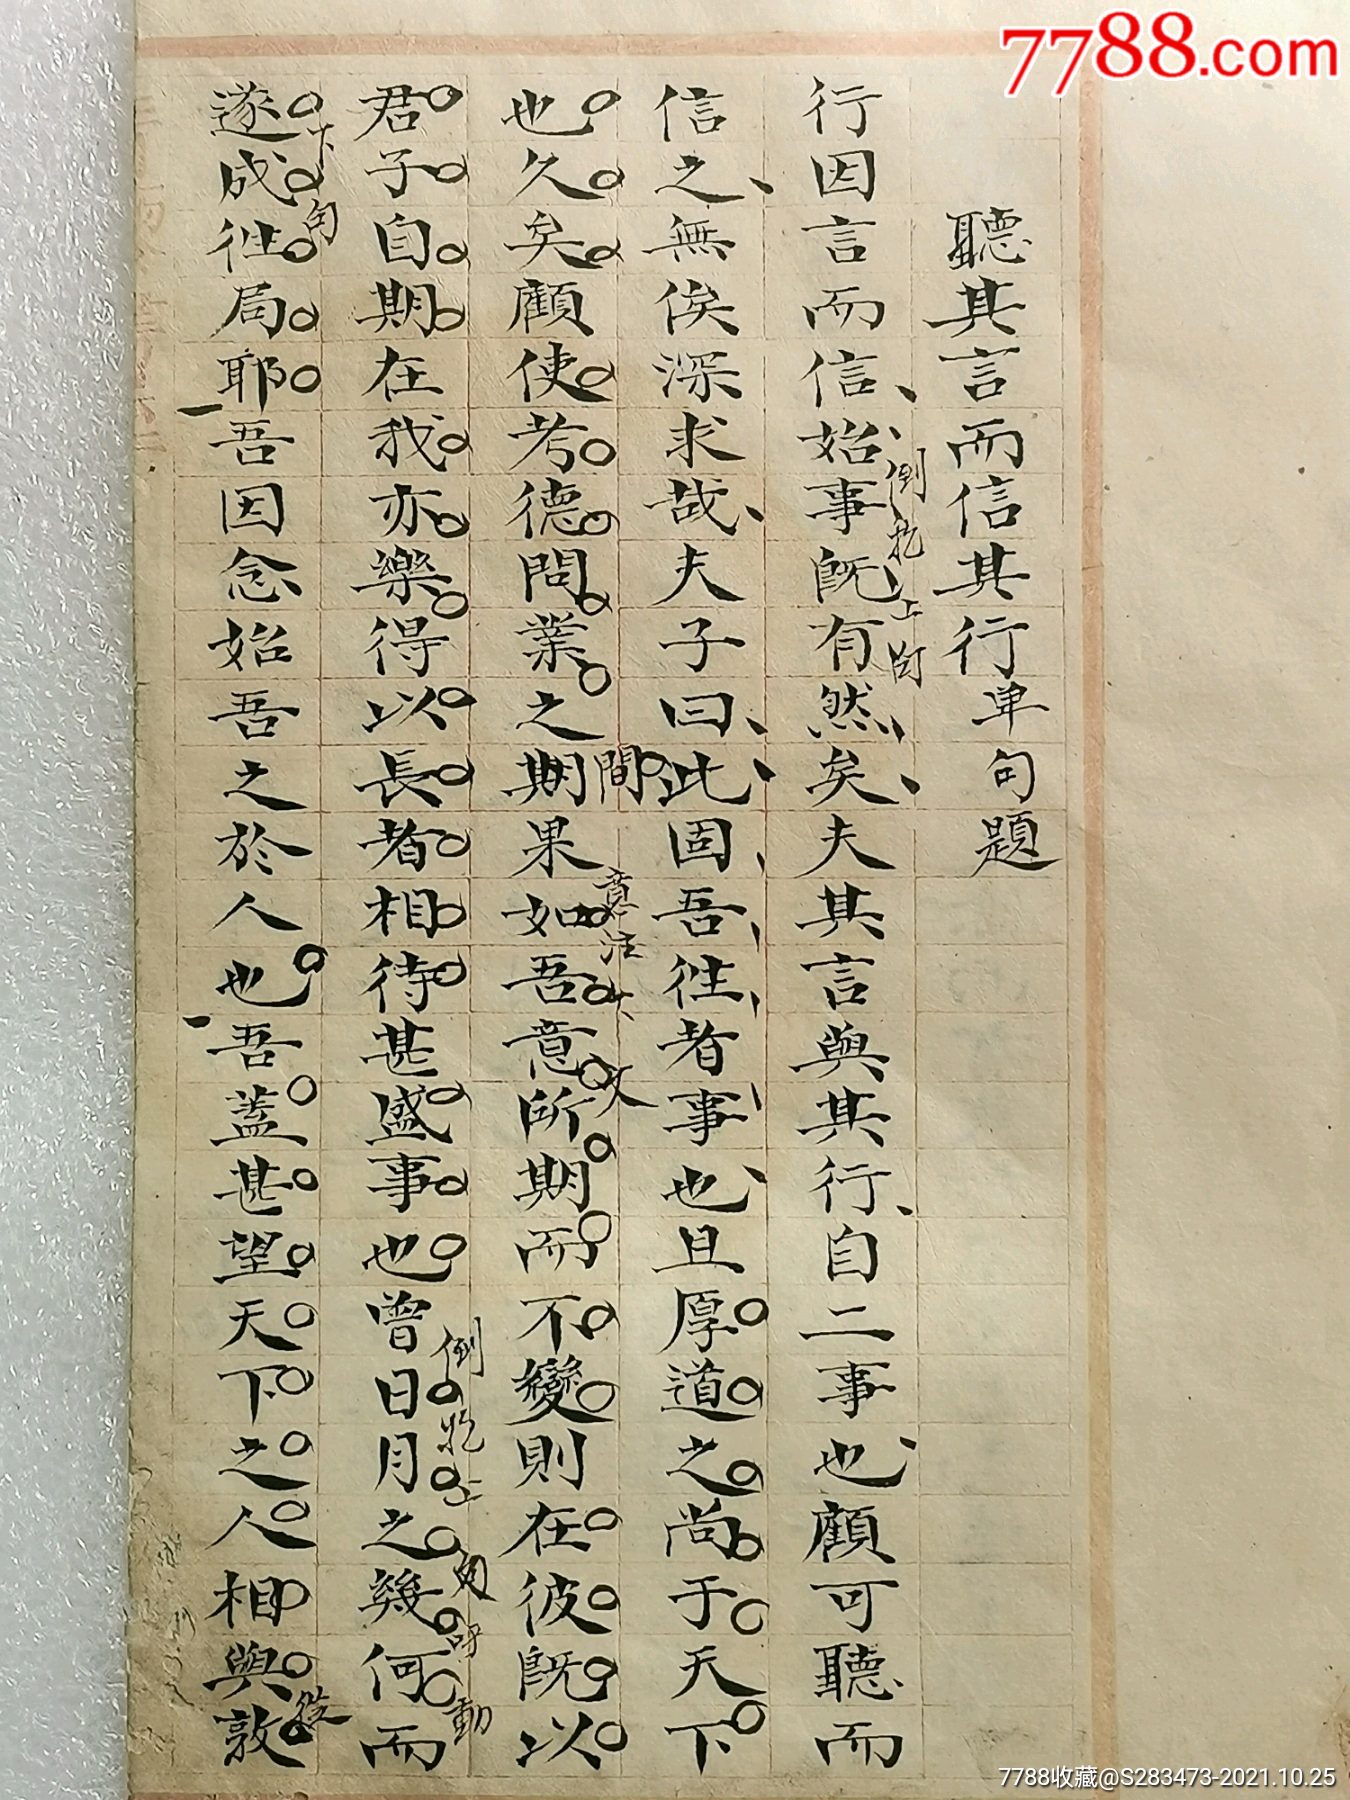 7788.com
聽其言而信其行單句題
行因言而信始事既有然矣夫其言與其行自二事也顧可聽而
倒托上句
信之無俟深求哉夫子曰此固吾徃者事也且厚道之尚于天下
也久矣顧使考德問業之期間果如吾意所期而不變則在彼既以
意注
文
君子自期在我亦樂得以長者相待甚盛事也曾日月之幾何而
倒托上句呼動
遂成徃局耶吾因念始吾之於人也吾蓋甚望天下之人相與敦
下句
7788收藏@S283473-2021.10.25